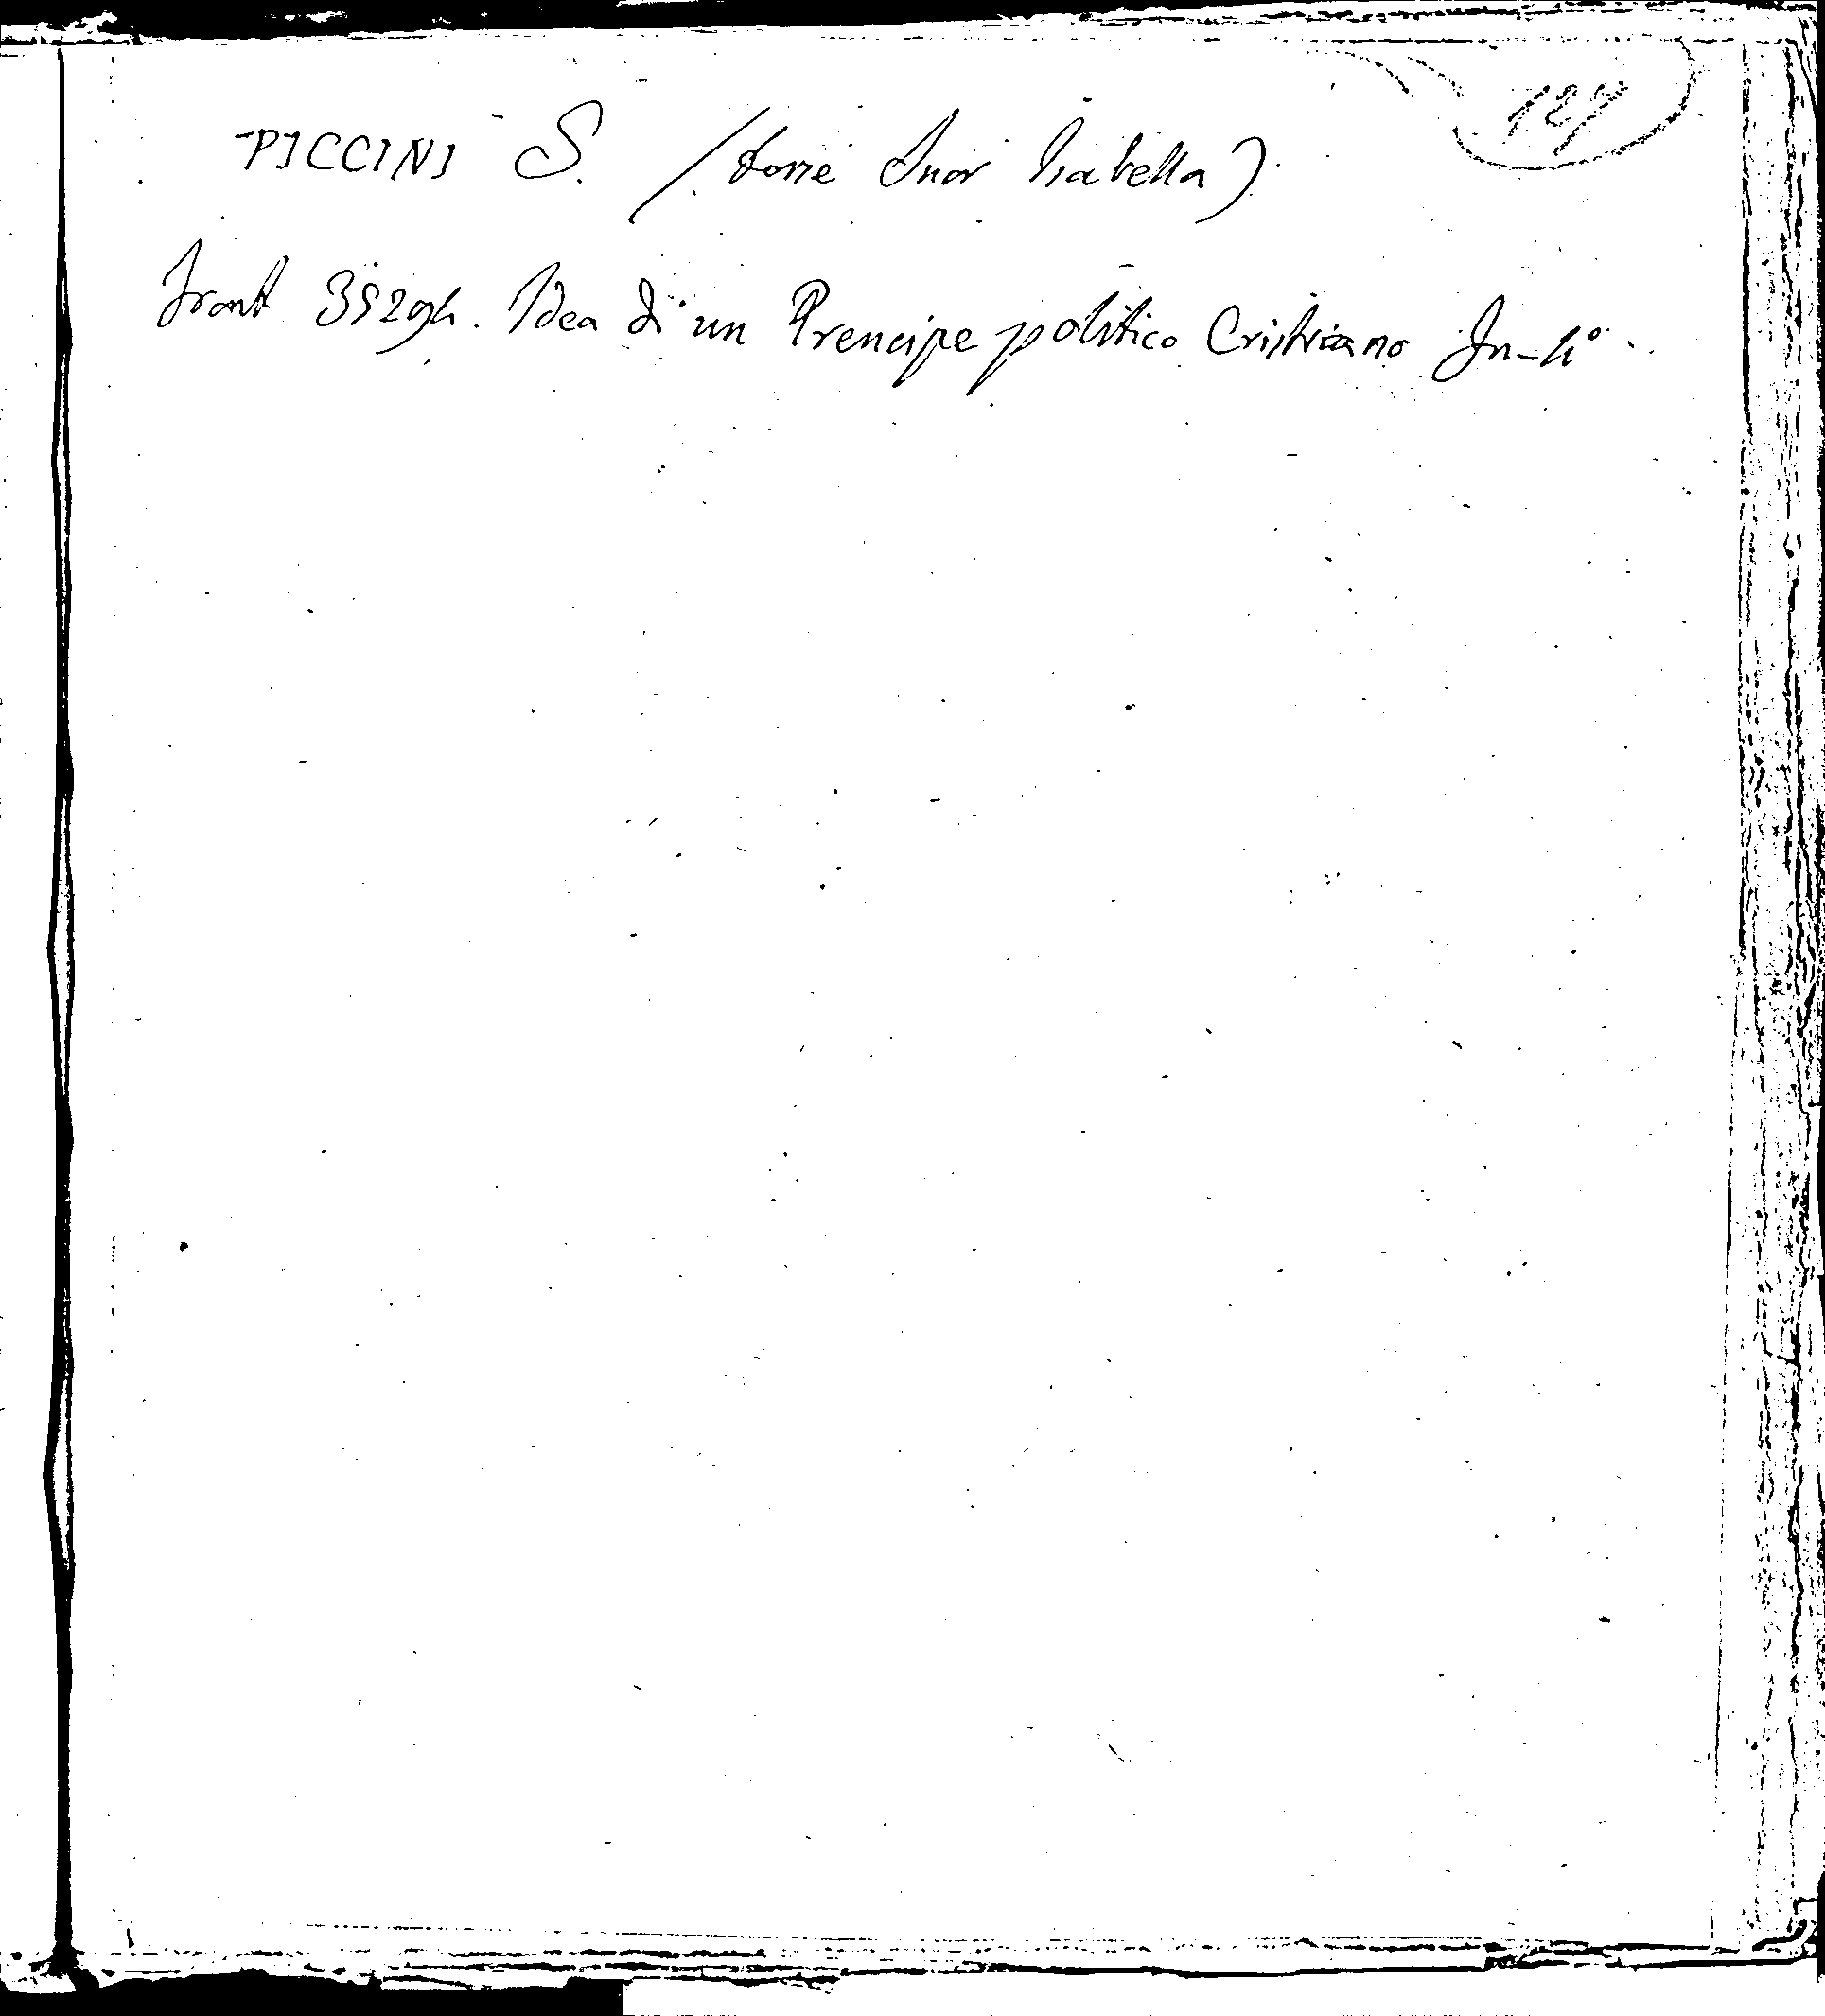 127
PICCINI S. (forse Suor Isabella)
Front 35294. Idea di un Prencipe politico Cristiano In-4°